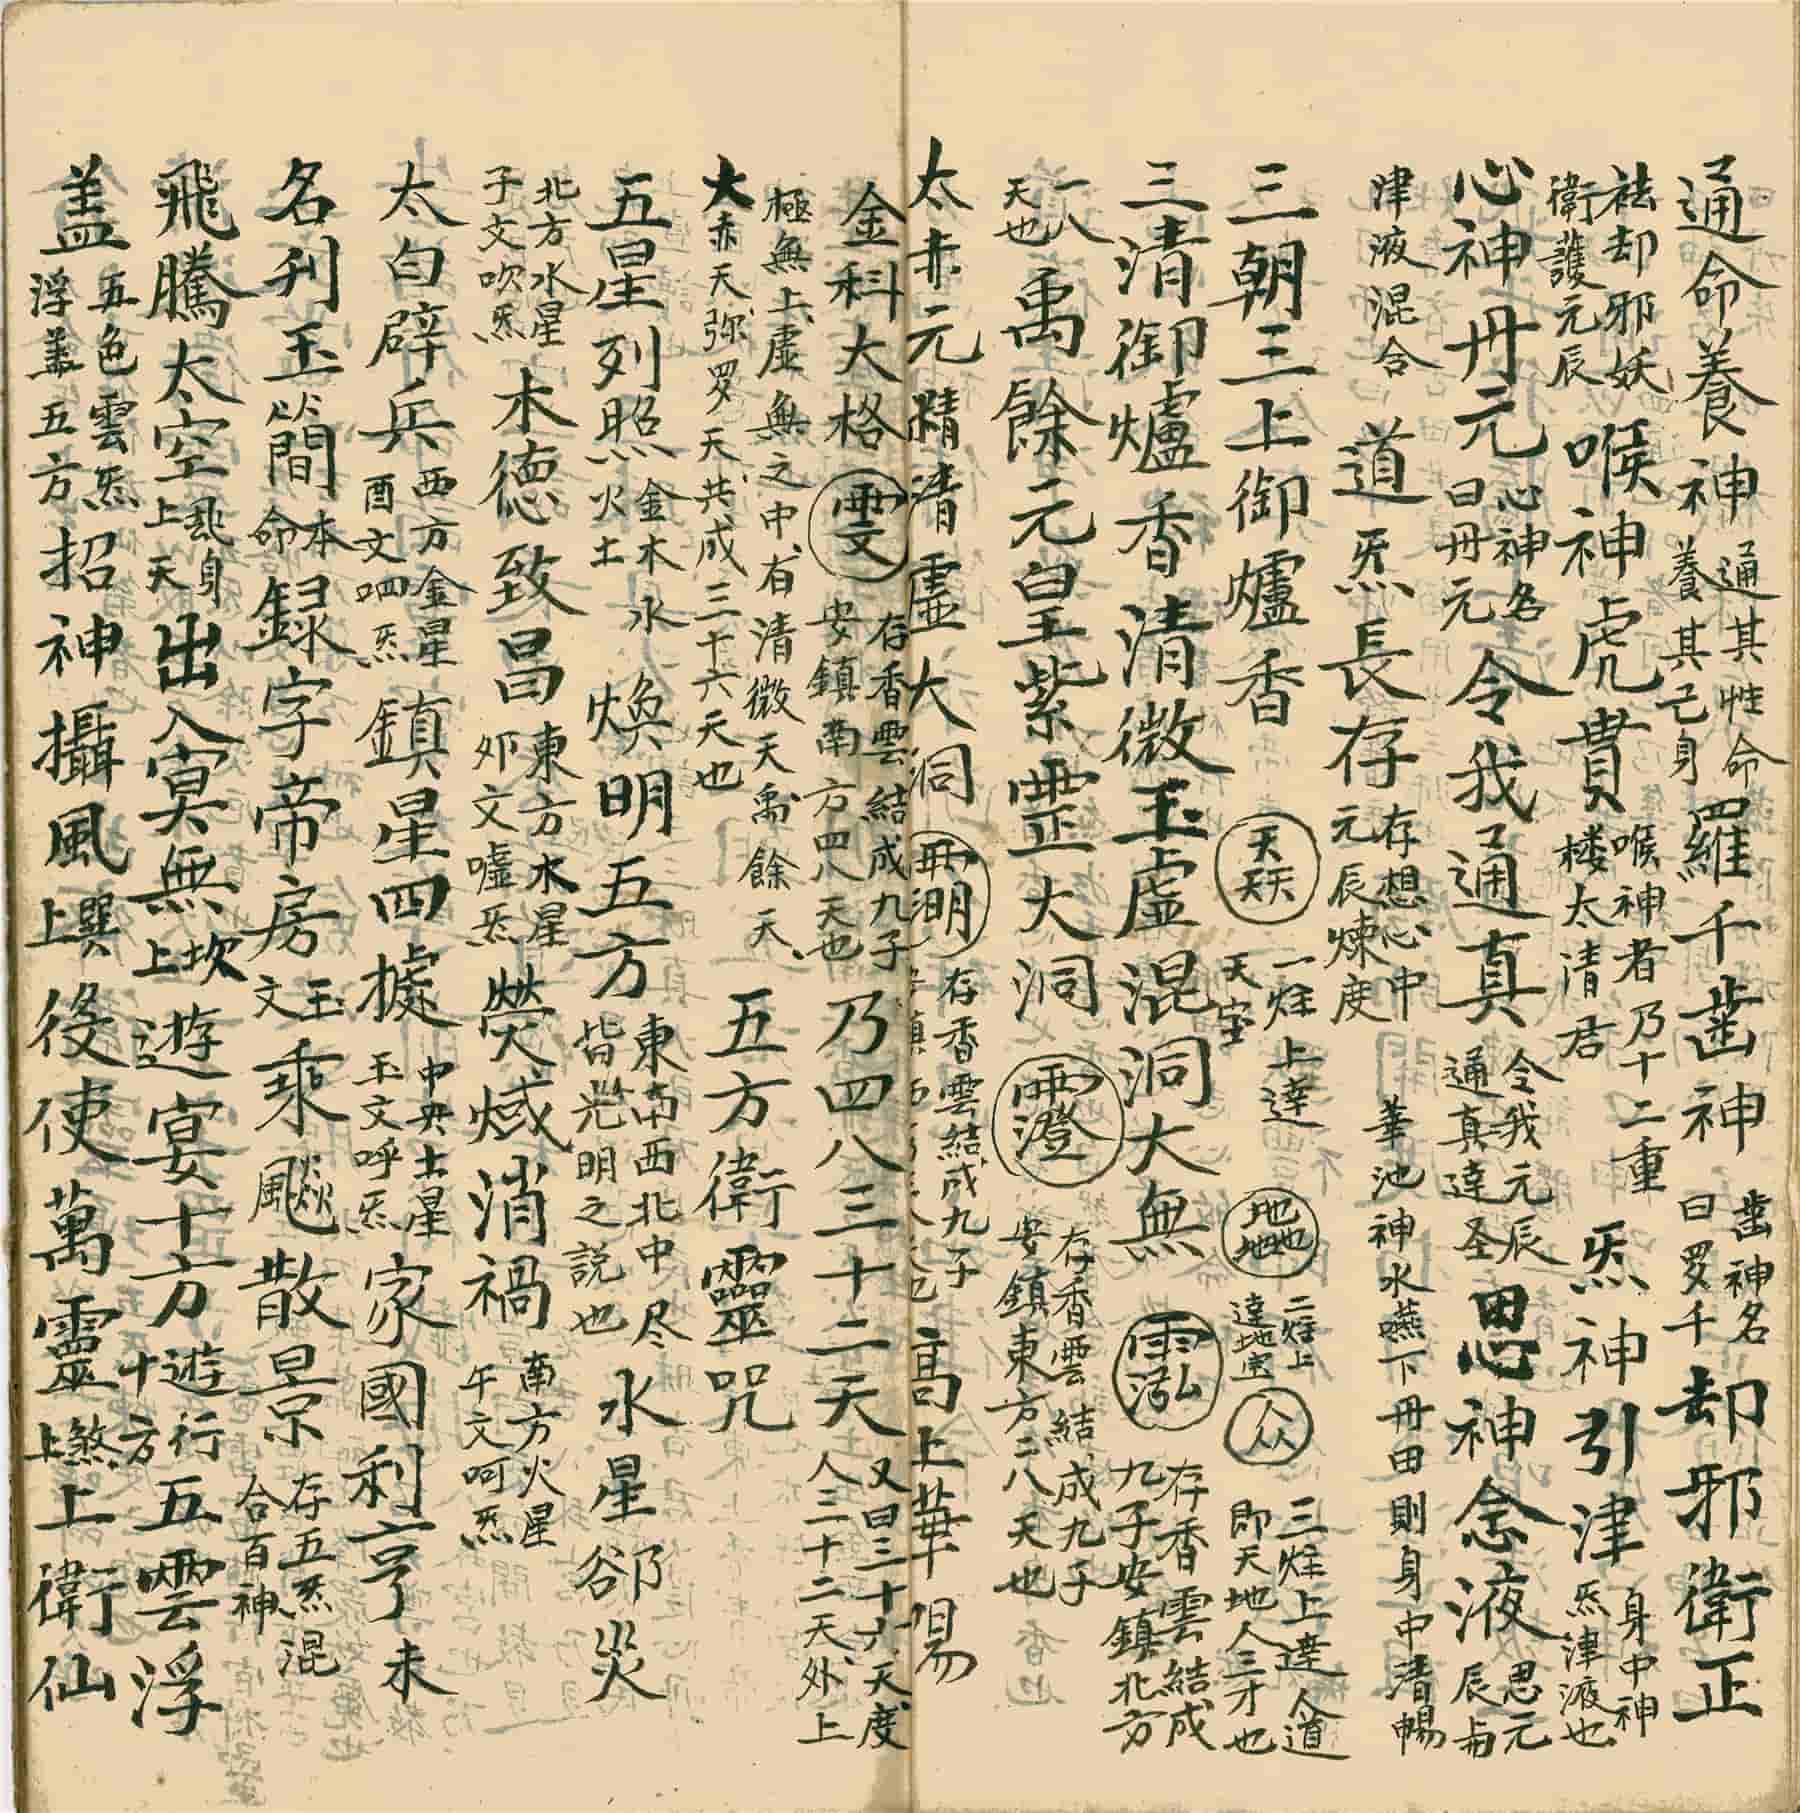 通命養神通其性命養其己身羅千齒神齒神名曰罗千却邪衛正
袪却邪妖衛護元辰喉神虎賁喉神者乃十二重楼太清君炁神引津身中神炁津液也
心神丹元心神名曰丹元令我通真令我元辰通真達圣思神念液思元辰與
津液混合道炁長存存想心中元辰煉度華池神水嚥下丹田則身中清暢
三朝三上御爐香天天天一炷上達天宝地地地二炷上達地宝人人人三炷上達人道即天地人三才也
三清御爐香清微玉虛混洞大無⿱雨泓存香雲結成九子安鎮北方
一八天也禹餘元皇紫霊大洞⿱雨澄存香雲結成九子安鎮東方二八天也
太赤元精清虛大洞存香雲結成九子高上華暘
金科大格雯存香雲結成九子安鎮南方四八天也乃四八三十二天又曰三十六天度人三十二天外上
極無上虛無之中有清微天禹餘天、大赤天弥罗天共成三十六天也五方衛靈咒
五星列照金木水火土煥明五方東南西北中尽皆光明之説也水星郤災
北方水星子文吹炁木德致昌東方木星夘文嘘炁熒惑消禍南方火星午文呵炁
太白辟兵西方金星酉文呬炁鎮星四據中央土星玉文呼炁家國利亨未
名刋玉簡本命録字帝房玉文乘飈散景存五炁混合百神
飛騰太空身上天出入冥無坎上遊宴十方遊行十方五雲浮
盖五色雲炁浮盖五方招神攝風巽上役使萬靈煞上上衛仙